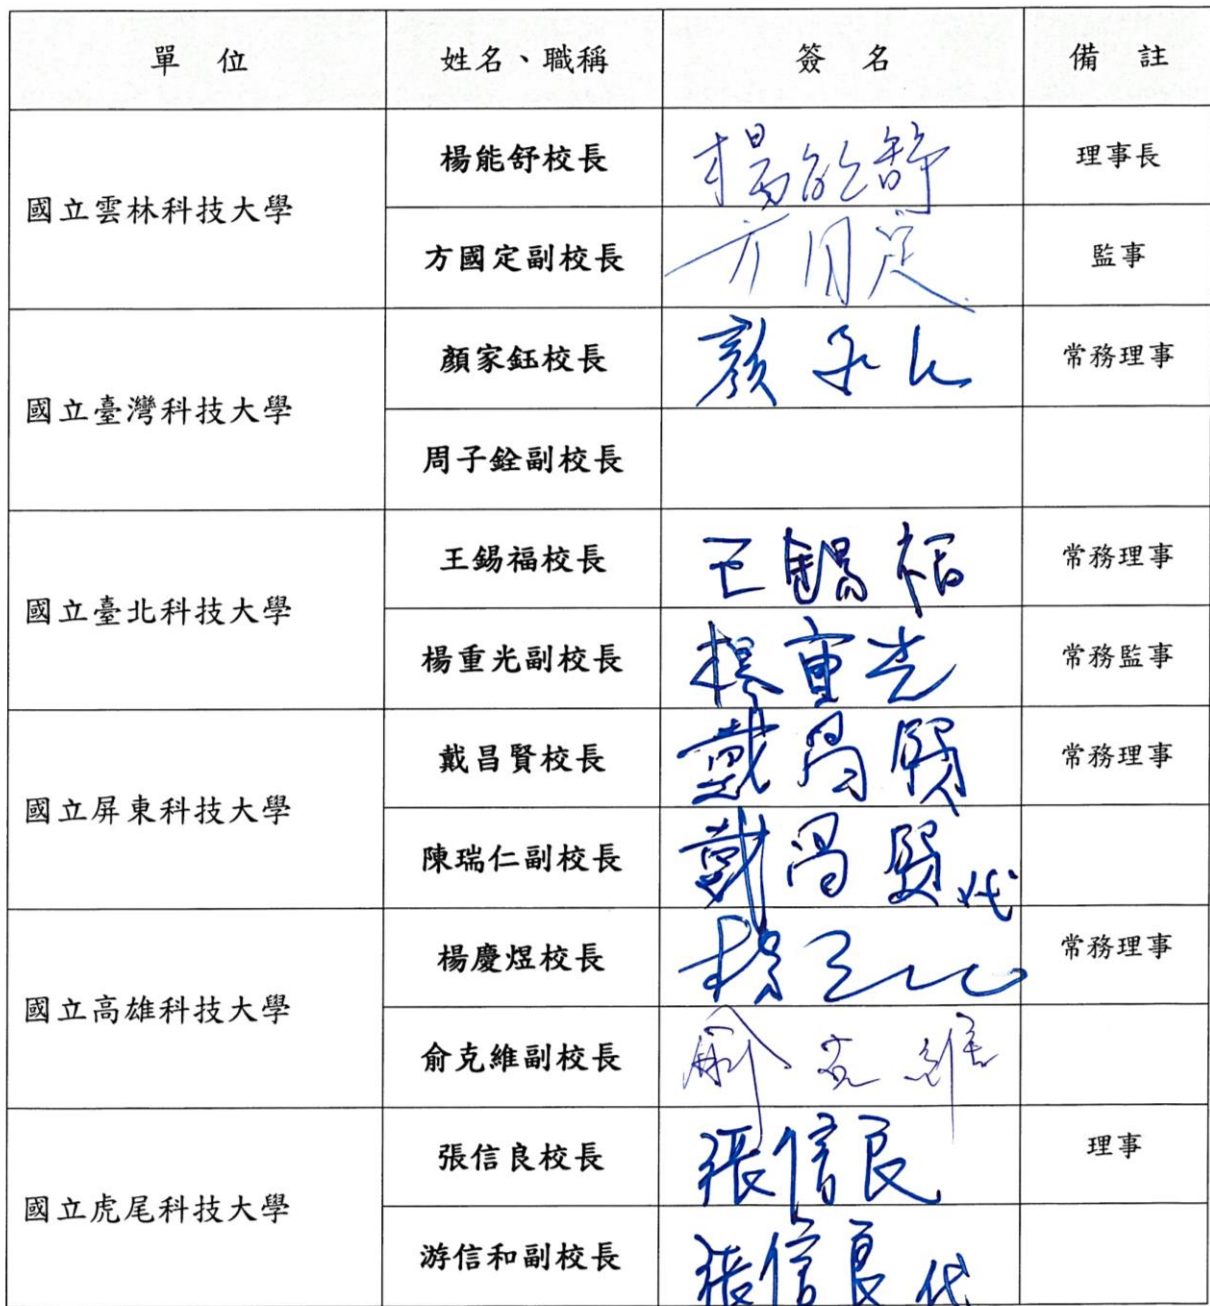 單 位 姓名、職稱 簽 名 備 註
國立雲林科技大學
楊能舒校長 楊能舒 理事長
方國定副校長 方国定 監事
國立臺灣科技大學
顏家鈺校長 顏 常務理事
周子銓副校長
國立臺北科技大學
王錫福校長 王錫福 常務理事
楊重光副校長 楊重光 常務監事
國立屏東科技大學
戴昌賢校長 戴昌賢 常務理事
陳瑞仁副校長 戴昌賢代
國立高雄科技大學
楊慶煜校長 楊 常務理事
俞克維副校長 俞克維
國立虎尾科技大學
張信良校長 張信良 理事
游信和副校長 張信良代